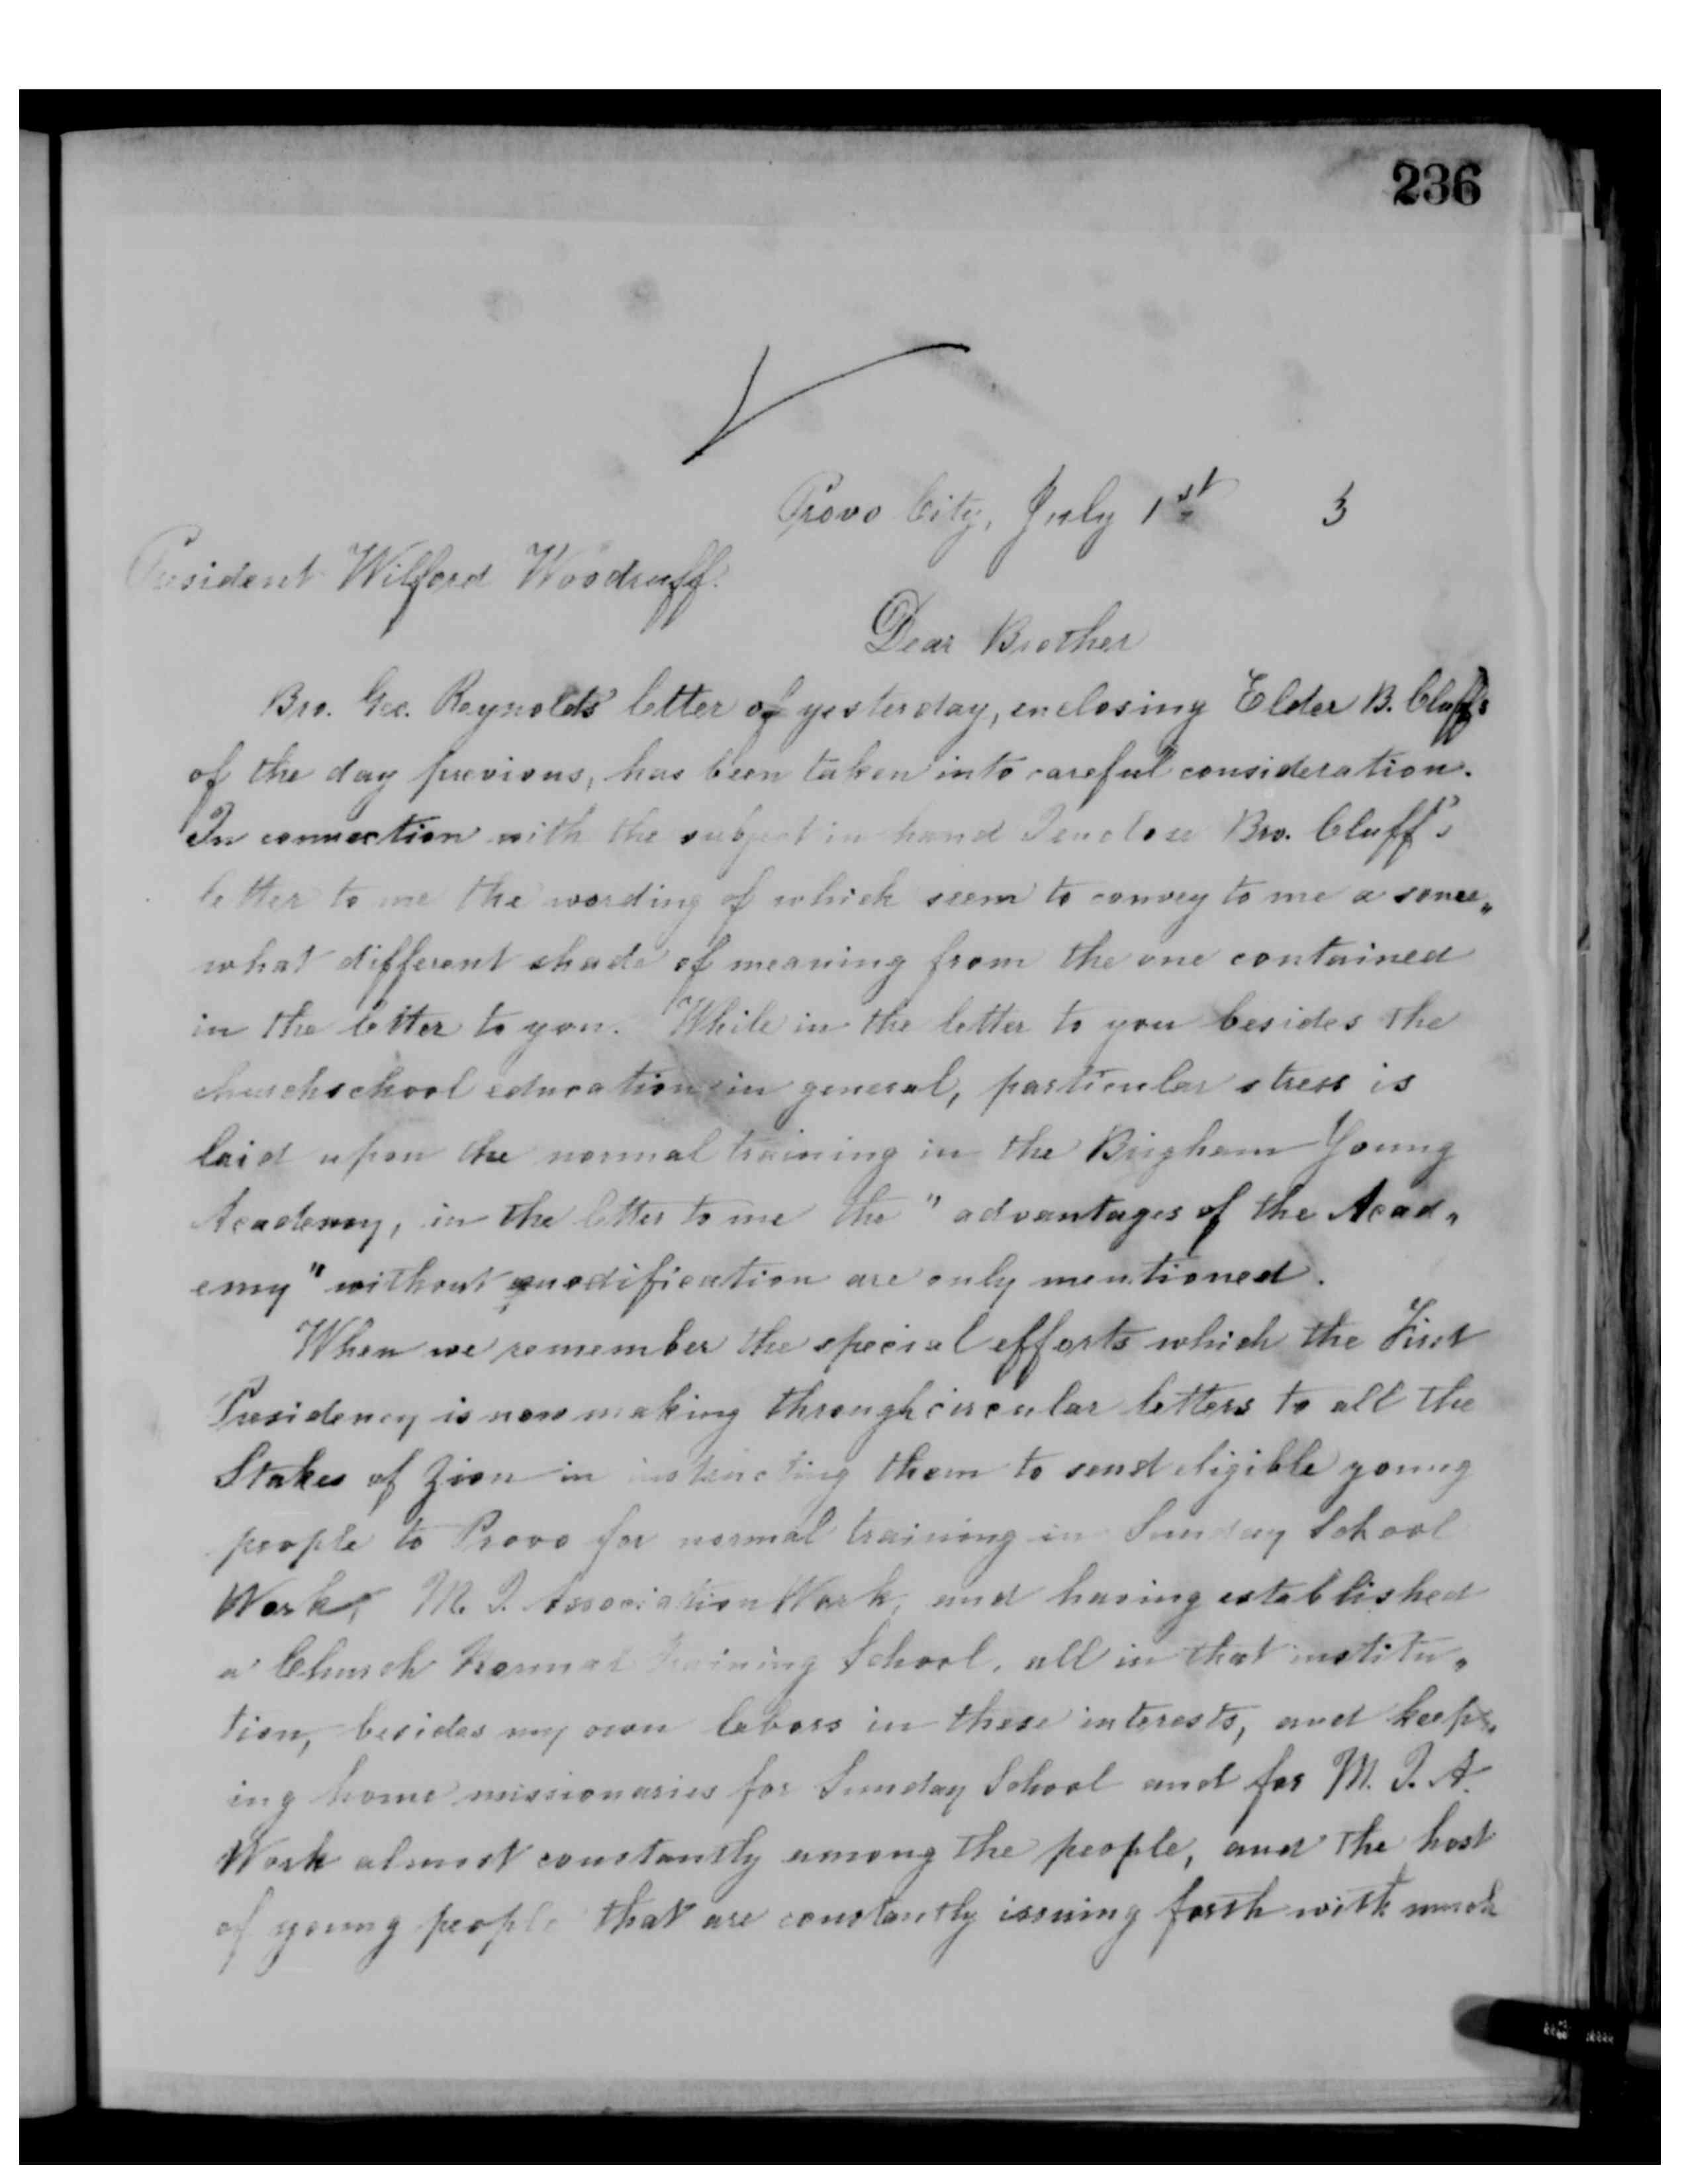 236
Provo City, July 1st 3
President Wilford Woodruff.
Dear Brother
Bro. Geo. Reynolds' letter of yesterday, enclosing Elder B. Cluff's
of the day previous, has been taken into careful consideration.
In connection with the subject in hand I enclose Bro. Cluff's
letter to me the wording of which seem to convey to me a some„
what different shade of meaning from the one contained
in the letter to you. While in the letter to you besides the
churchschool education in general, particular stress is
laid upon the normal training in the Brigham Young
Academy, in the letter to me the "advantages of the Acad„
emy" without modification are only mentioned.
When we remember the special efforts which the First
Presidency is now making through circular letters to all the
Stakes of Zion in instructing them to send eligible young
people to Provo for normal training in Sunday School
Work, M. I. Association Work, and having established
a Church Normal Training School, all in that institu„
tion, besides my own labors in these interests, and keep„
ing home missionaries for Sunday School and for M. I. A.
Work almost constantly among the people, and the host
of young people that are constantly issuing forth with much